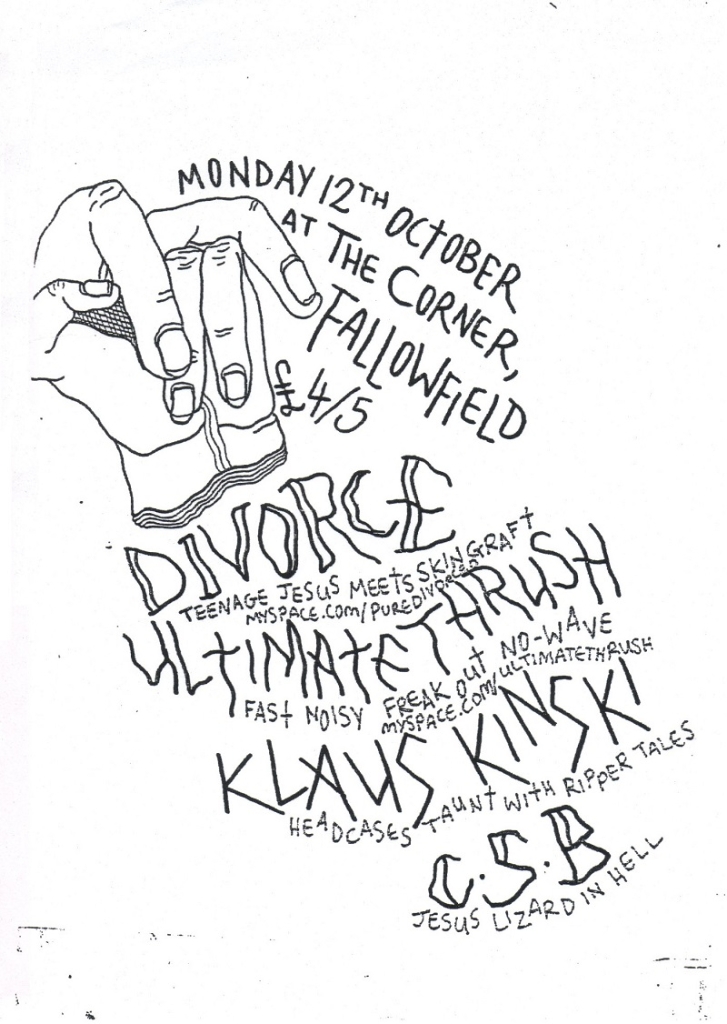 MONDAY 12TH OCTOBER
AT THE CORNER,
FALLOWFIELD
£4/5
DIVORCE
TEENAGE JESUS MEETS SKINGRAFT
MYSPACE.COM/PUREDIVORCE
ULTIMATE THRUSH
FAST NOISY FREAK OUT NO-WAVE
MYSPACE.COM/ULTIMATETHRUSH
KLAUS KINSKI
HEADCASES TAUNT WITH RIPPER TALES
C.S.B
JESUS LIZARD IN HELL